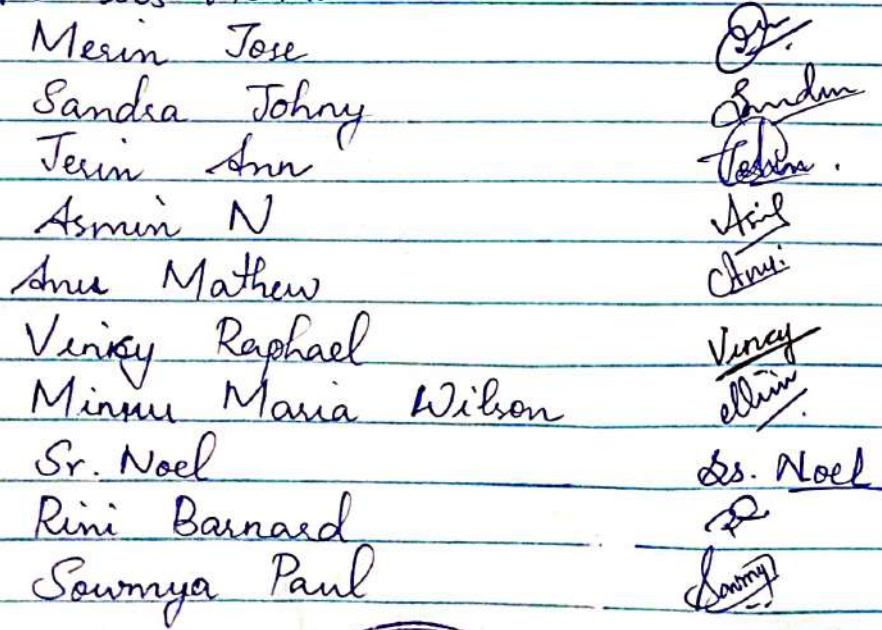 Merin Jose
Sandra Johny Sandra
Jerin Ann Jerin.
Asmin N
Anu Mathew Anu
Vinsy Raphael Vincy
Minnu Maria Wilson
Sr. Noel Sr. Noel
Rini Barnard
Sowmya Paul Sowmy